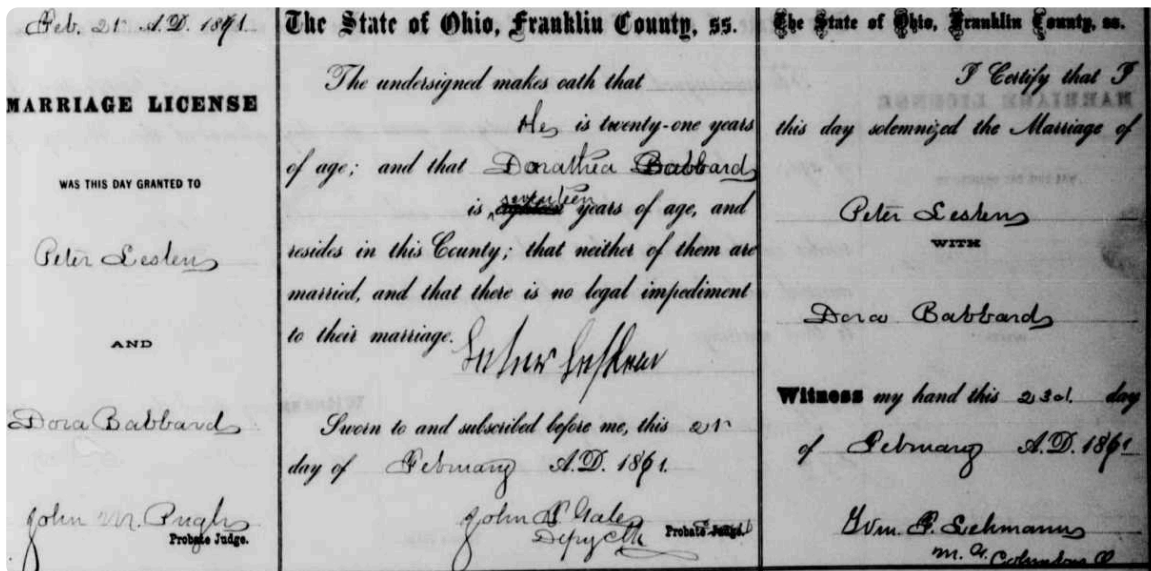 Feb. 21st A.D. 1871.
MARRIAGE LICENSE
WAS THIS DAY GRANTED TO
Peter
AND
Dora Babbard
John M. Pugh
Probate Judge.
The State of Ohio, Franklin County, ss.
The undersigned makes oath that
He is twenty-one years
of age; and that Dorathea Babbard
seventeen
is eighteen years of age, and
resides in this County; that neither of them are
married, and that there is no legal impediment
to their marriage.
Sworn to and subscribed before me, this 21st
day of February A.D. 1871.
John
Probate Judge.
The State of Ohio, Franklin County, ss.
I Certify that I
this day solemnized the Marriage of
Peter
WITH
Dora Babbard
Witness my hand this 23d. day
of February A.D. 1871
Lehmann
Columbus O